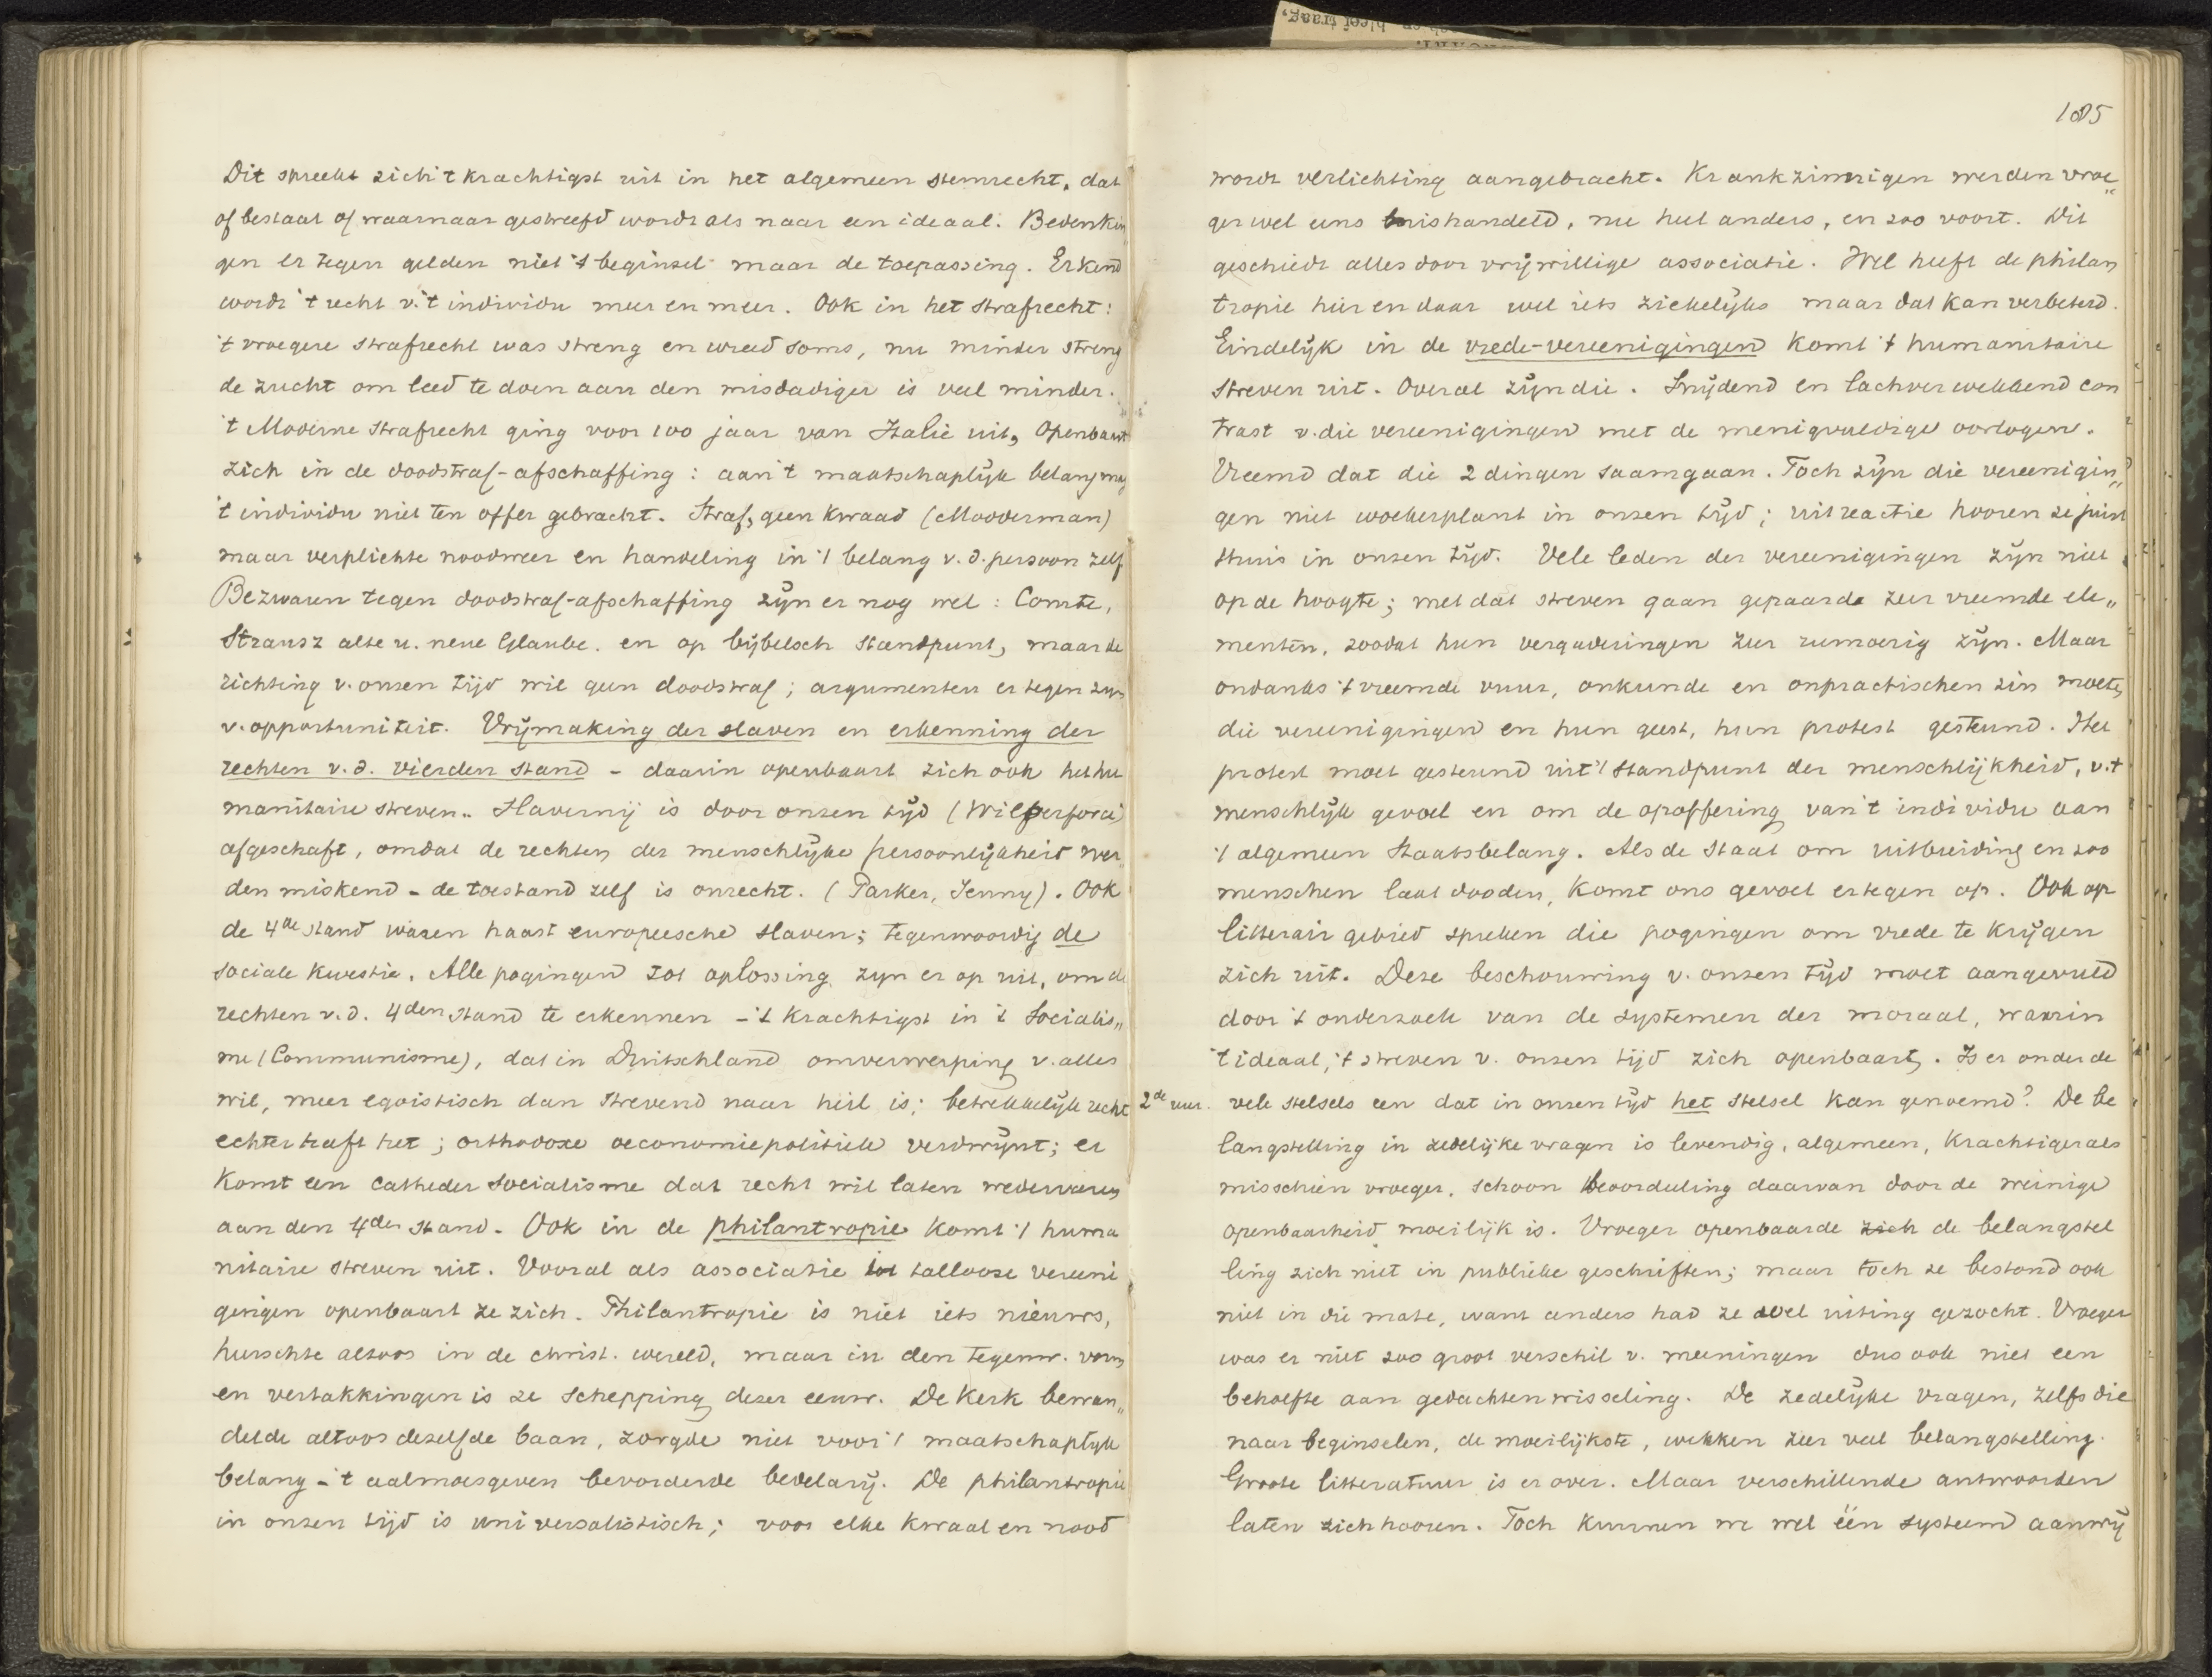 Dit spreekt zich 't krachtigst uit in het algemeen stemrecht, dat
of bestaat of waarnaar gestreefd wordt als naar een ideaal. Bedenkin„
gen er tegen gelden niet 't beginsel maar de toepassing. Erkend
wordt 't recht v. 't individu meer en meer. Ook in het strafrecht:
't vroegere strafrecht was streng en wreed soms, nu minder streng
de zucht om leed te doen aan den misdadiger is veel minder.
't Moderne strafrecht ging voor 100 jaar van Italië uit, openbaart
zich in de doodstraf-afschaffing: aan 't maatschaplijk belang mag
't individu niet ten offer gebracht. Straf, geen kwaad (Modderman)
maar verplichte noodweer en handeling in 't belang v. d. persoon zelf
Bezwaren tegen doodstraf-afschaffing zijn er nog wel: Comte,
Strausz alte u. neue Glaube. en op bijbelsch standpunt, maar de
richting v. onzen tijd wil geen doodstraf; argumenten er tegen zijn
v. opportuniteit. Vrijmaking der slaven en erkenning der
rechten v. d. vierden stand - daarin openbaart zich ook het hu
manitaire streven. Slavernij is door onzen tijd (Wilperforce)
afgeschaft, omdat de rechten der menschlijke persoonlijkheid wer„
den miskend - de toestand zelf is onrecht. (Parker, Jenny). Ook
de 4de stand waren haast europeesche slaven; tegenwoordig de
sociale kwestie. Alle pogingen tot oplossing zijn er op uit, om de
rechten v. d. 4den stand te erkennen - 't krachtigst in 't Socialis„
me (Communisme), dat in Duitschland omverwerping v. alles
wil, meer egoistisch dan strevend naar heil is; betrekkelijk recht
echter heeft het; orthodoxe oeconomiepolitiek verdwijnt; er
komt een catheder socialisme dat recht wil laten wedervaren
aan den 4den stand. Ook in de philantropie komt 't huma
nitaire streven uit. Vooral als associatie tot tallooze vereeni
gingen openbaart ze zich. Philantropie is niet iets nieuws,
heerschte altoos in de christ. wereld, maar in den tegenw. vorm
en vertakkingen is ze schepping dezer eeuw. De Kerk bewan„
delde altoos dezelfde baan, zorgde niet voor 't maatschaplijk
belang - 't aalmoesgeven bevorderde bedelarij. De philantropie
in onzen tijd is universalistisch; voor elke kwaal en nood
185
wordt verlichting aangebracht. Krankzinnigen werden vroe„
ger wel eens mishandeld, nu heel anders, en zoo voort. Dit
geschiedt alles door vrijwillige associatie. Wel heeft de philan
tropie hier en daar wel iets ziekelijks maar dat kan verbeterd.
Eindelijk in de vrede-vereenigingen komt 't humanitaire
streven uit. Overal zijn die. Snijdend en lachverwekkend con
trast v. die vereenigingen met de menigvuldige oorlogen.
Vreemd dat die 2 dingen saamgaan. Toch zijn die vereenigin„
gen niet woekerplant in onzen tijd; uit reactie hooren ze juist
thuis in onzen tijd. Vele leden der vereenigingen zijn niet
op de hoogte; met dat streven gaan gepaard zeer vreemde ele„
menten, zoodat hun vergaderingen zeer rumoerig zijn. Maar
ondanks 't vreemde vuur, onkunde en onpractischen zin moeten
die vereenigingen en hun geest, hun protest gesteund. Het
protest moet gesteund uit 't standpunt der menschlijkheid, v. 't
menschlijk gevoel en om de opoffering van 't individu aan
't algemeen Staatsbelang. Als de Staat om uitbreiding en zoo
menschen laat dooden, komt ons gevoel er tegen op. Ook op
litterair gebied spreken die pogingen om vrede te krijgen
zich uit. Deze beschouwing v. onzen tijd moet aangevuld
door 't onderzoek van de systemen der moraal, waarin
't ideaal, 't streven v. onzen tijd zich openbaart. Is er onder de
2de uur. vele stelsels een dat in onzen tijd het stelsel kan genoemd? De be
langstelling in zedelijke vragen is levendig, algemeen, krachtiger als
misschien vroeger, schoon beoordeeling daarvan door de weinige
openbaarheid moeilijk is. Vroeger openbaarde zich de belangstel
ling zich niet in publieke geschriften; maar toch ze bestond ook
niet in die mate, want anders had ze wel uiting gezocht. Vroeger
was er niet zoo groot verschil v. meeningen dus ook niet een
behoefte aan gedachtenwisseling. De zedelijke vragen, zelfs die
naar beginselen, de moeilijkste, wekken zeer veel belangstelling.
Groote litteratuur is er over. Maar verschillende antwoorden
laten zich hooren. Toch kunnen we wel één systeem aanwij